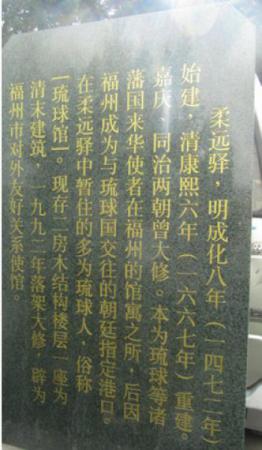 柔远驿,明成化八年(一四七二年)
始建,清康熙六年(一六六七年)重建。
嘉庆、同治两朝曾大修。本为琉球等诸
藩国来华使者在福州的馆寓之所,后因
福州成为与琉球国交往的朝廷指定港口。
在柔远驿中暂住的多为琉球人,俗称
“琉球馆”。现存二房木结构楼层一座为
清末建筑,一九九二年落架大修,辟为
福州市对外友好关系使馆。